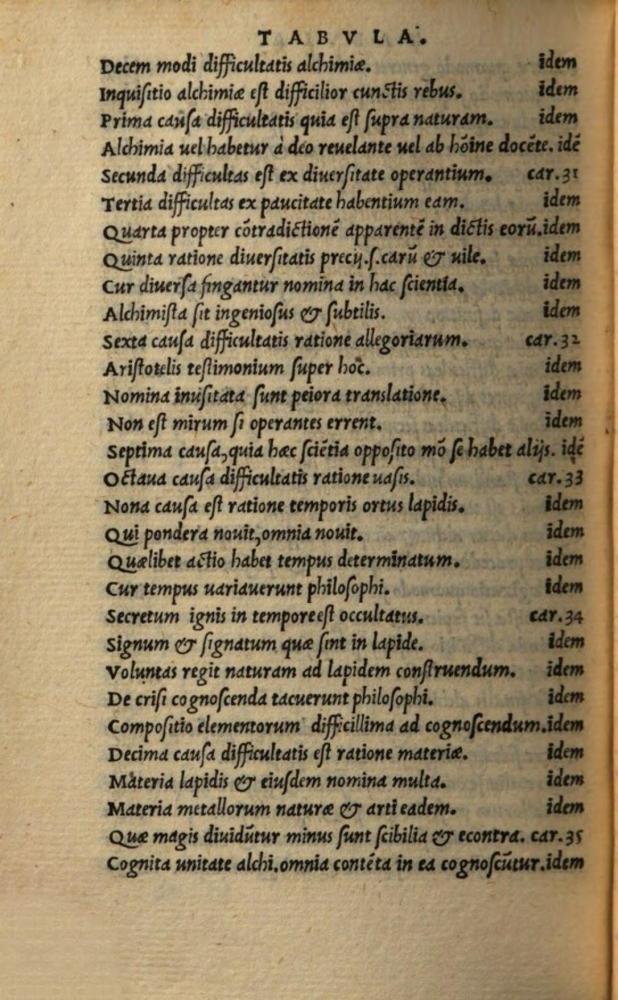 TABVLA.
Decem modi difficultatis alchimiæ. idem
Inquiſitio alchimiæ eſt difficilior cunctis rebus. idem
Prima cauſa difficultatis quia eſt ſupra naturam. idem
Alchimia uel habetur a deo reuelante uel ab hōine docēte. idē
Secunda difficultas eſt ex diuerſitate operantium. car.31
Tertia difficultas ex paucitate habentium eam. idem
Quarta propter cōtradictionē apparentē in dictis eorū. idem
Quinta ratione diuerſitatis precij.ſ.carū & uile. idem
Cur diuerſa fingantur nomina in hac ſcientia. idem
Alchimiſta ſit ingenioſus & ſubtilis. idem
Sexta cauſa difficultatis ratione allegoriarum. car.32
Ariſtotelis teſtimonium ſuper hoc. idem
Nomina inuſitata ſunt peiora tranſlatione. idem
Non eſt mirum ſi operantes errent. idem
Septima cauſa, quia hæc ſciētia oppoſito mō ſe habet alijs. idē
Octaua cauſa difficultatis ratione uaſis. car.33
Nona cauſa eſt ratione temporis ortus lapidis. idem
Qui pondera nouit, omnia nouit. idem
Quælibet actio habet tempus determinatum. idem
Cur tempus uariauerunt philoſophi. idem
Secretum ignis in tempore eſt occultatus. car.34
Signum & ſignatum quæ ſint in lapide. idem
Voluntas regit naturam ad lapidem conſtruendum. idem
De criſi cognoſcenda tacuerunt philoſophi. idem
Compoſitio elementorum difficillima ad cognoſcendum. idem
Decima cauſa difficultatis eſt ratione materiæ. idem
Materia lapidis & eiuſdem nomina multa. idem
Materia metallorum naturæ & arti eadem. idem
Quæ magis diuidūtur minus ſunt ſcibilia & econtra. car.35
Cognita unitate alchi.omnia contēta in ea cognoſcūtur. idem